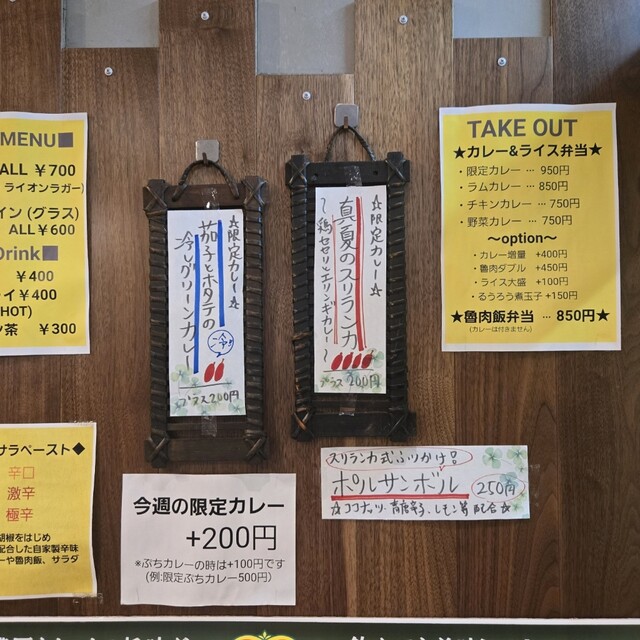 MENU■
ALL ¥700
ライオンラガー)
イン (グラス)
ALL ¥600
Drink■
¥400
イ ¥400
HOT)
ン茶 ¥300
サラペースト◆
辛口
激辛
極辛
胡椒をはじめ
配合した自家製辛味
ーや魯肉飯、サラダ
☆限定カレー☆
茄子とホタテの
冷しグリーンカレー
プラス200円
☆限定カレー☆
真夏のスリランカ
〜鶏セセリとエリンギカレー〜
プラス200円
今週の限定カレー
+200円
*ぷちカレーの時は+100円です
(例:限定ぷちカレー500円)
TAKE OUT
★カレー&ライス弁当★
・限定カレー … 950円
・ラムカレー … 850円
・チキンカレー … 750円
・野菜カレー … 750円
〜option〜
・カレー増量 +400円
・魯肉ダブル +450円
・ライス大盛 +100円
・るうろう煮玉子 +150円
★魯肉飯弁当 … 850円★
(カレーは付きません)
スリランカ式ふりかけ!!
ポルサンボル 250円
☆ココナッツ、青唐辛子、レモン等配合☆